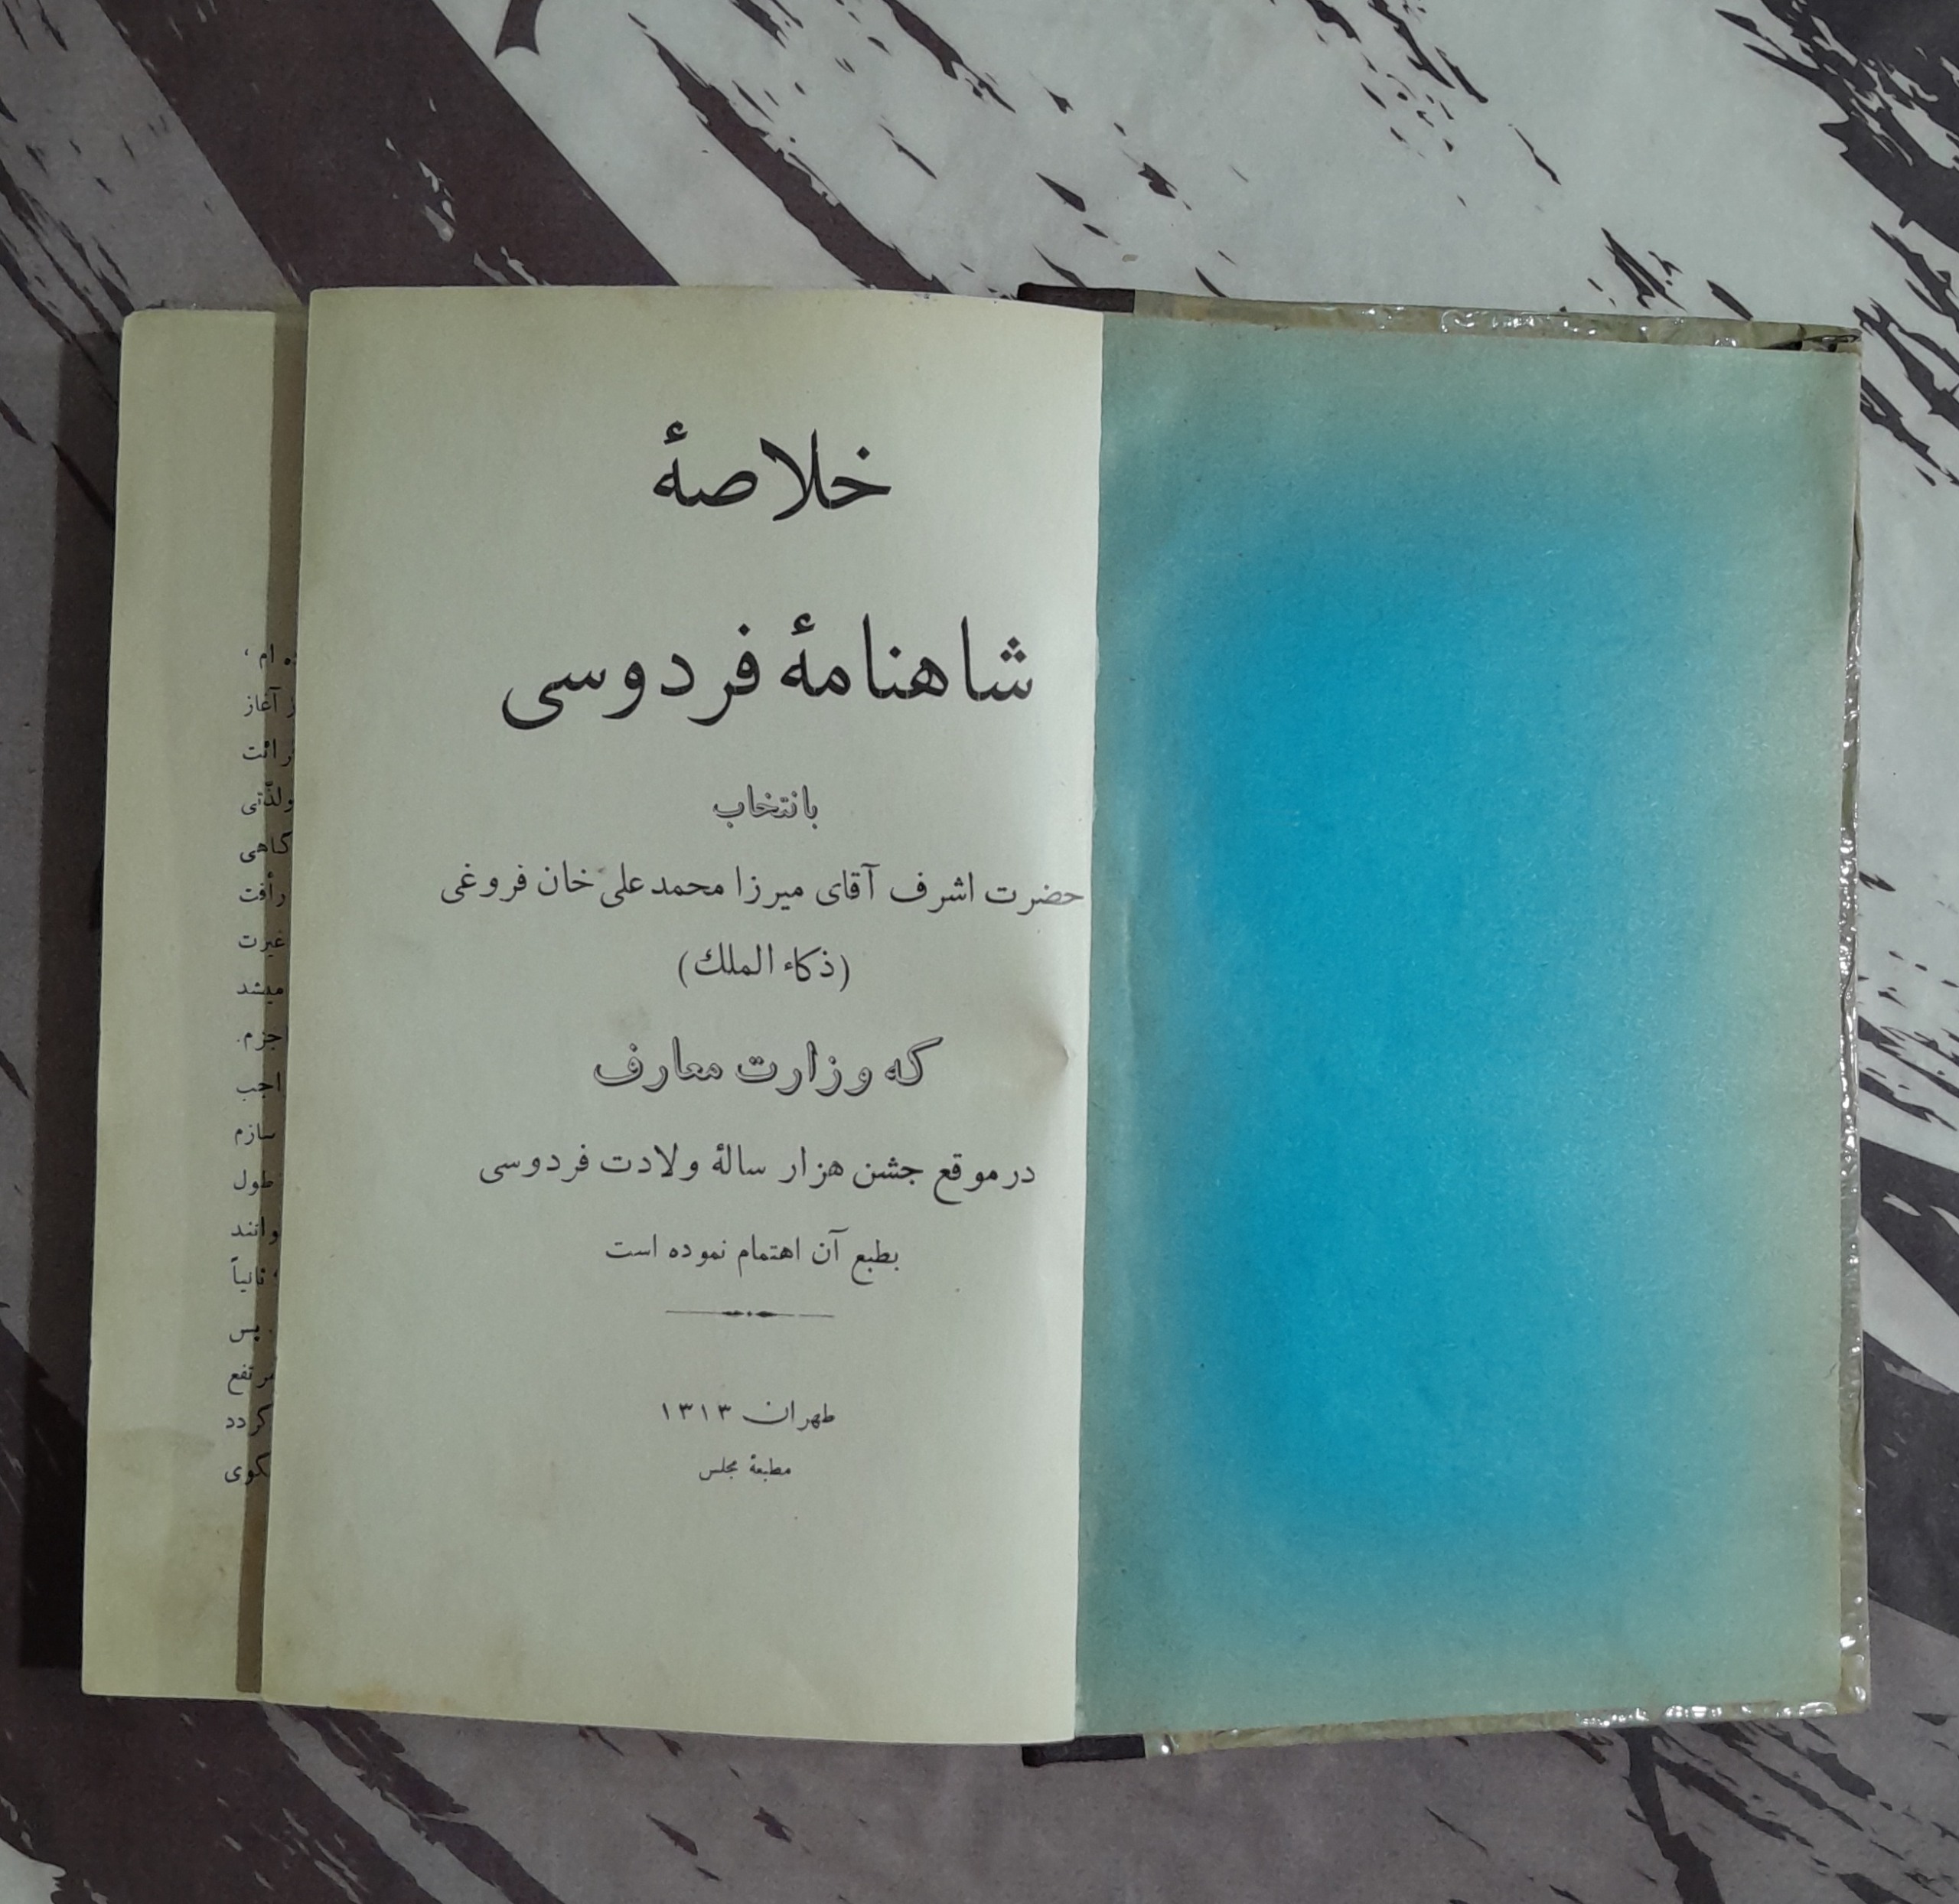 خلاصهٔ
شاهنامهٔ فردوسی
بانتخاب
حضرت اشرف آقای میرزا محمد علی خان فروغی
(ذکاء الملك)
که وزارت معارف
در موقع جشن هزار سالهٔ ولادت فردوسی
بطبع آن اهتمام نموده است
طهران ۱۳۱۳
مطبعهٔ مجلس
ام ،
آغاز
ولذّتی
گاهی
رأفت
غیرت
میشد
جزم
سازم
طول
ثانیاً
پس
گردد